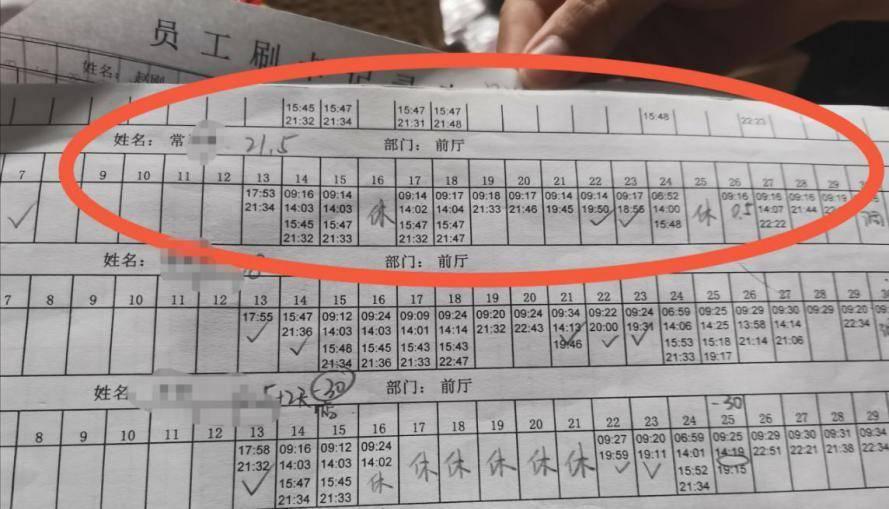 员工刷卡记录
姓名: 赵刚
15:45 15:47 15:47 15:47 15:48 22:23
21:32 21:34 21:31 21:48
姓名: 常 21.5 部门: 前厅
7 9 10 11 12 13 14 15 16 17 18 19 20 21 22 23 24 25 26 27 28 29
17:53 09:16 09:14 休 09:14 09:17 09:18 09:17 09:14 09:14 09:17 06:52 休 09:16 09:16 09:16 09:19
21:34 14:03 14:03 14:02 14:04 21:33 21:46 19:45 19:50 18:56 14:00 0.5 14:07 21:44
15:45 15:47 15:47 15:47 15:48 22:22
21:32 21:33 21:32 21:47
姓名: 部门: 前厅
7 8 9 10 11 12 13 14 15 16 17 18 19 20 21 22 23 24 25 26 27 28 29
17:55 15:47 09:12 09:24 09:09 09:24 09:20 09:24 09:34 09:22 09:24 06:59 09:25 09:29 09:30 09:29 09:20
21:36 14:03 14:03 14:01 14:14 21:32 22:43 14:13 20:00 19:31 14:06 14:25 13:58 14:14 22:34
15:48 15:45 15:43 15:43 19:46 15:53 15:18 21:14 21:06
21:34 21:36 21:33 22:47 21:33 19:17
姓名: +2天 -30 部门: 前厅
-30
8 9 10 11 12 13 14 15 16 17 18 19 20 21 22 23 24 25 26 27 28 29
17:58 09:16 09:12 09:24 休 休 休 休 休 09:27 09:20 06:59 09:25 09:29 09:30 09:31 09:34
21:32 14:03 14:03 14:02 19:59 19:11 14:01 14:19 22:51 22:21 21:38 22:34
15:47 15:45 休 15:52 19:15
21:34 21:33 21:34